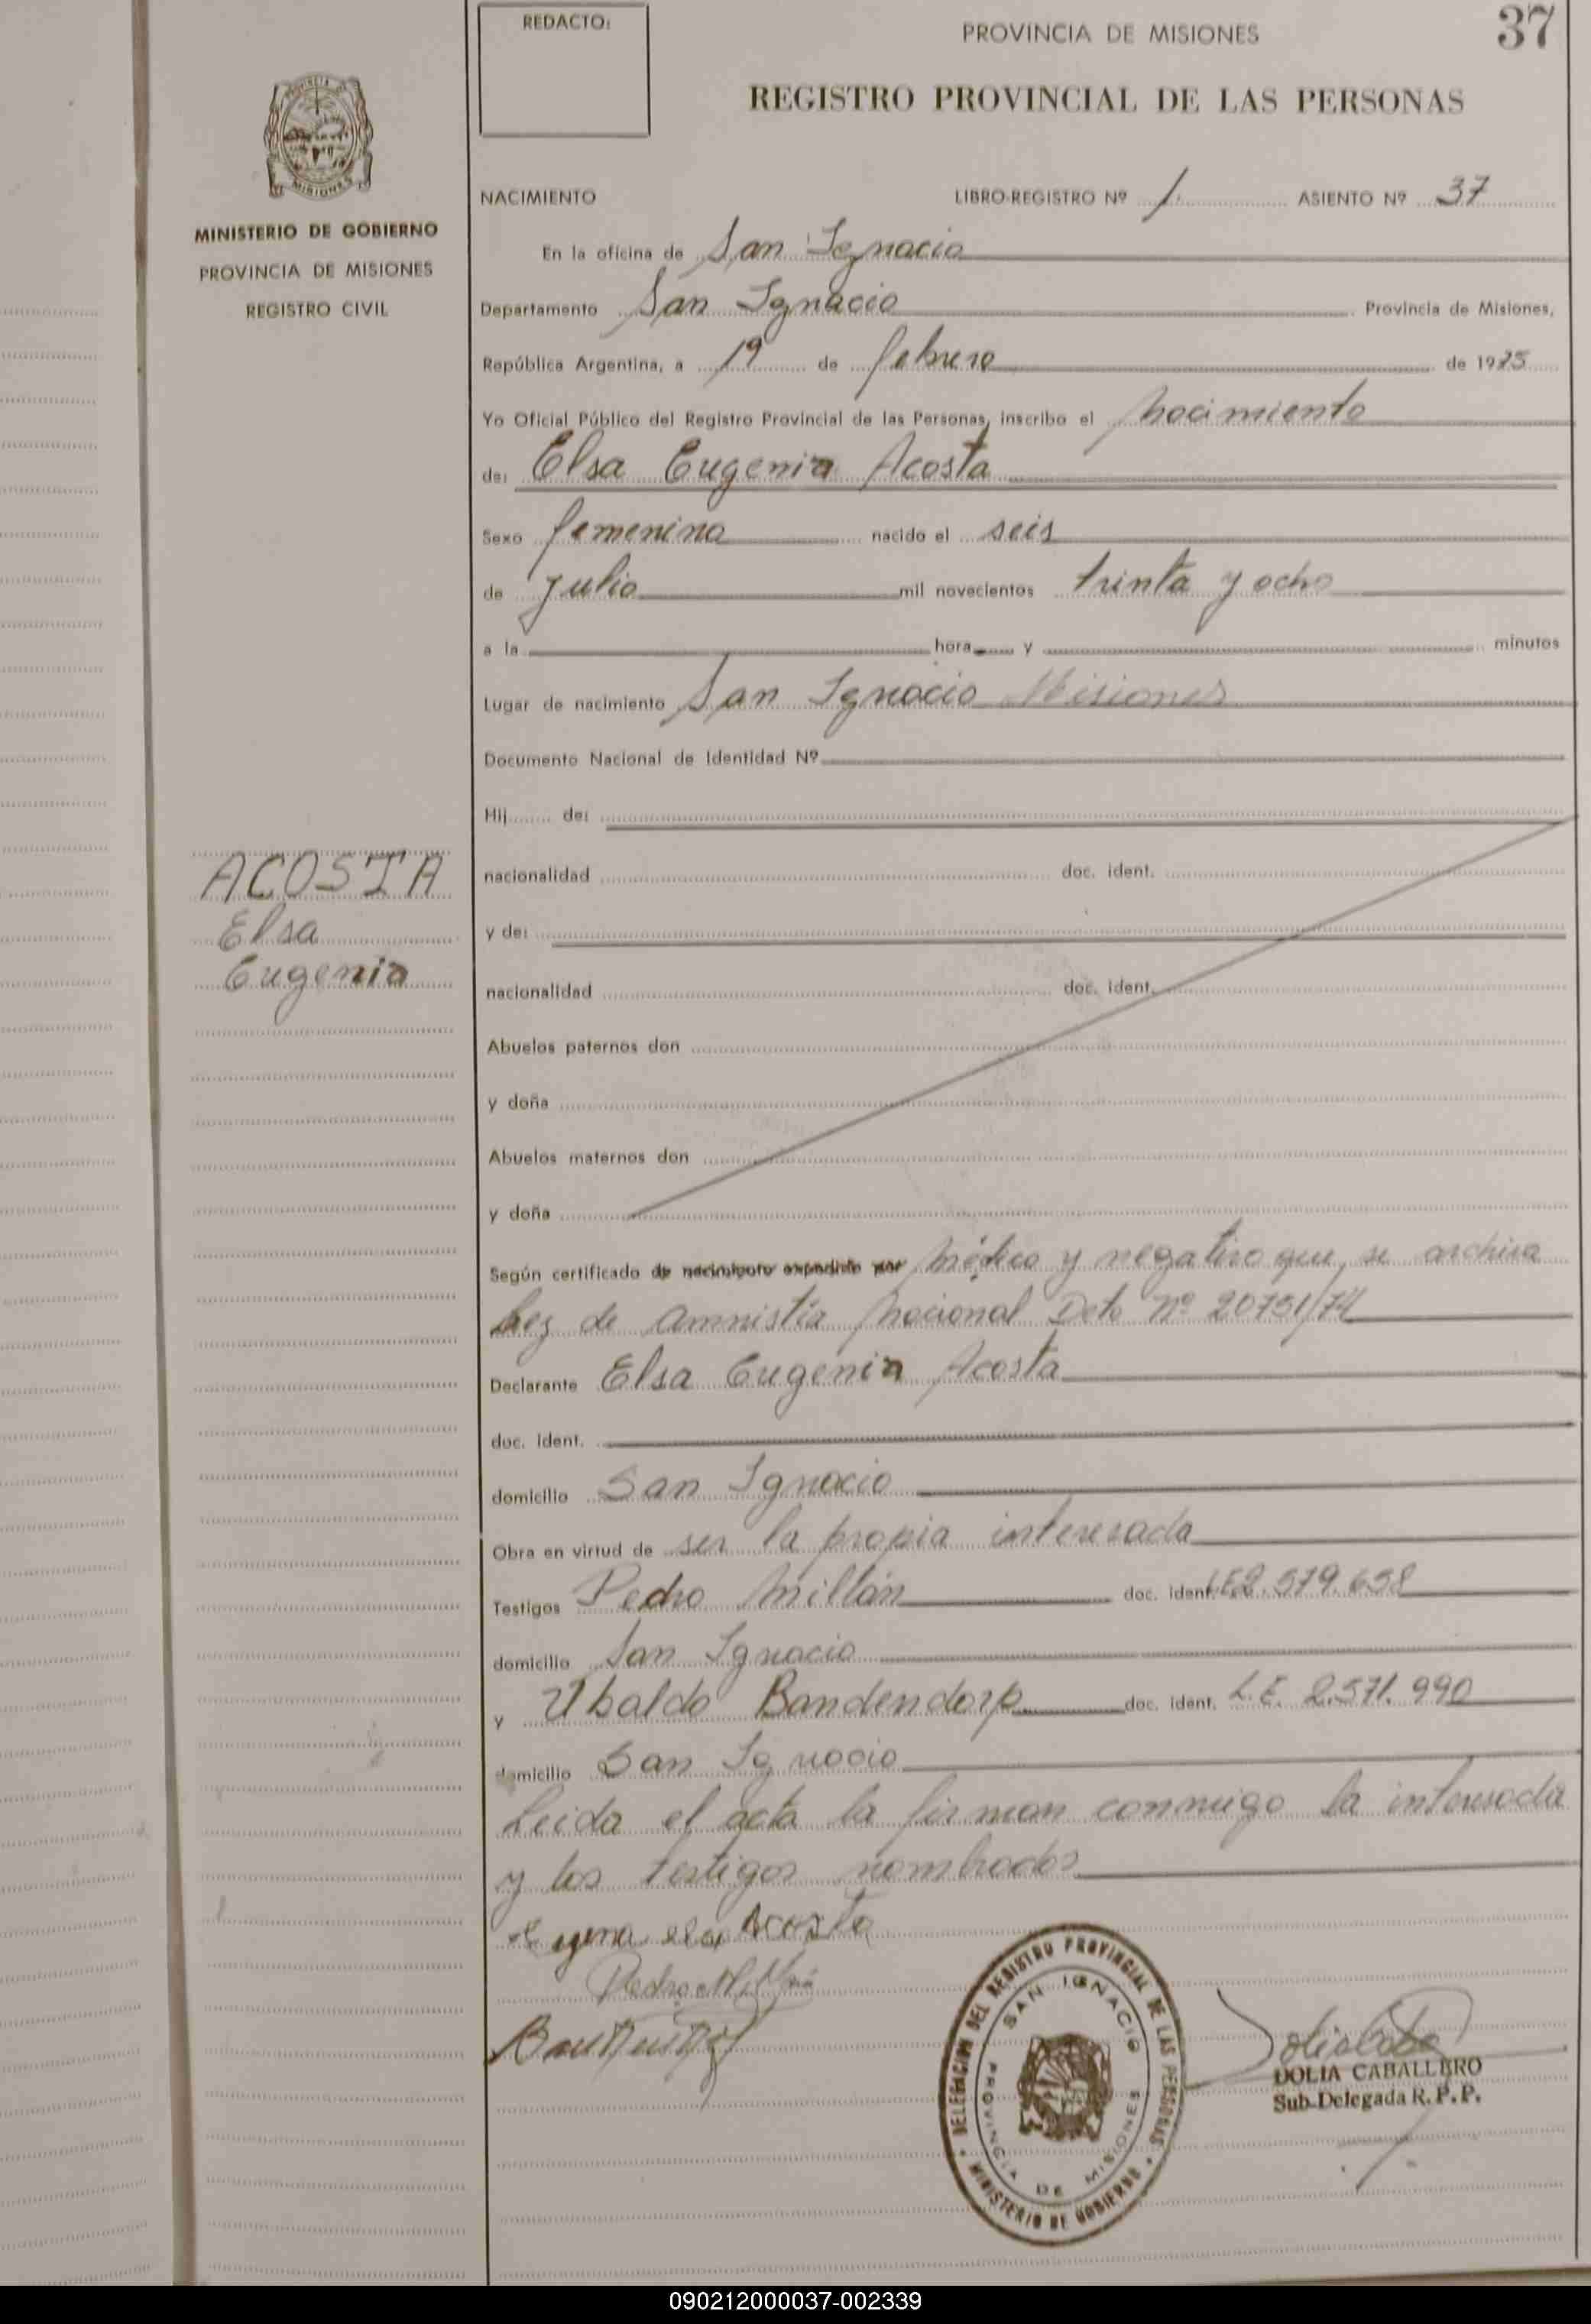 REDACTO:
PROVINCIA DE MISIONES
37
REGISTRO PROVINCIAL DE LAS PERSONAS
MISIONES
MINISTERIO DE GOBIERNO
PROVINCIA DE MISIONES
REGISTRO CIVIL
NACIMIENTO LIBRO-REGISTRO Nº 1 ASIENTO Nº 37
En la oficina de San Ignacio
Departamento San Ignacio Provincia de Misiones,
República Argentina, a 19 de febrero de 1975
Yo Oficial Público del Registro Provincial de las Personas, inscribo el nacimiento
de: Elsa Eugenia Acosta
Sexo femenino nacido el seis
de julio mil novecientos trinta y ocho
a la hora y minutos
Lugar de nacimiento San Ignacio Misiones
Documento Nacional de Identidad Nº
Hij de:
nacionalidad doc. ident.
y de:
nacionalidad doc. ident.
Abuelos paternos don
y doña
Abuelos maternos don
y doña
ACOSTA
Elsa
Eugenia
Según certificado de nacimiento expedido por médico y negativo que se archiva
Ley de amnistía nacional Deto nº 20751/74
Declarante Elsa Eugenia Acosta
doc. ident.
domicilio San Ignacio
Obra en virtud de ser la propia interesada
Testigos Pedro Millán doc. ident. LE 2.579.658
domicilio San Ignacio
y Ubaldo Bandendorp doc. ident. L.E. 2.571.990
domicilio San Ignacio
Leida el acta la firman conmigo la interesada
y los testigos nombrados
Acosta
Pedro Millán
DELEGACION DEL REGISTRO PROVINCIAL DE LAS PERSONAS
SAN IGNACIO
PROVINCIA DE MISIONES
MINISTERIO DE GOBIERNO
DOLIA CABALLERO
Sub-Delegada R. P. P.
090212000037-002339